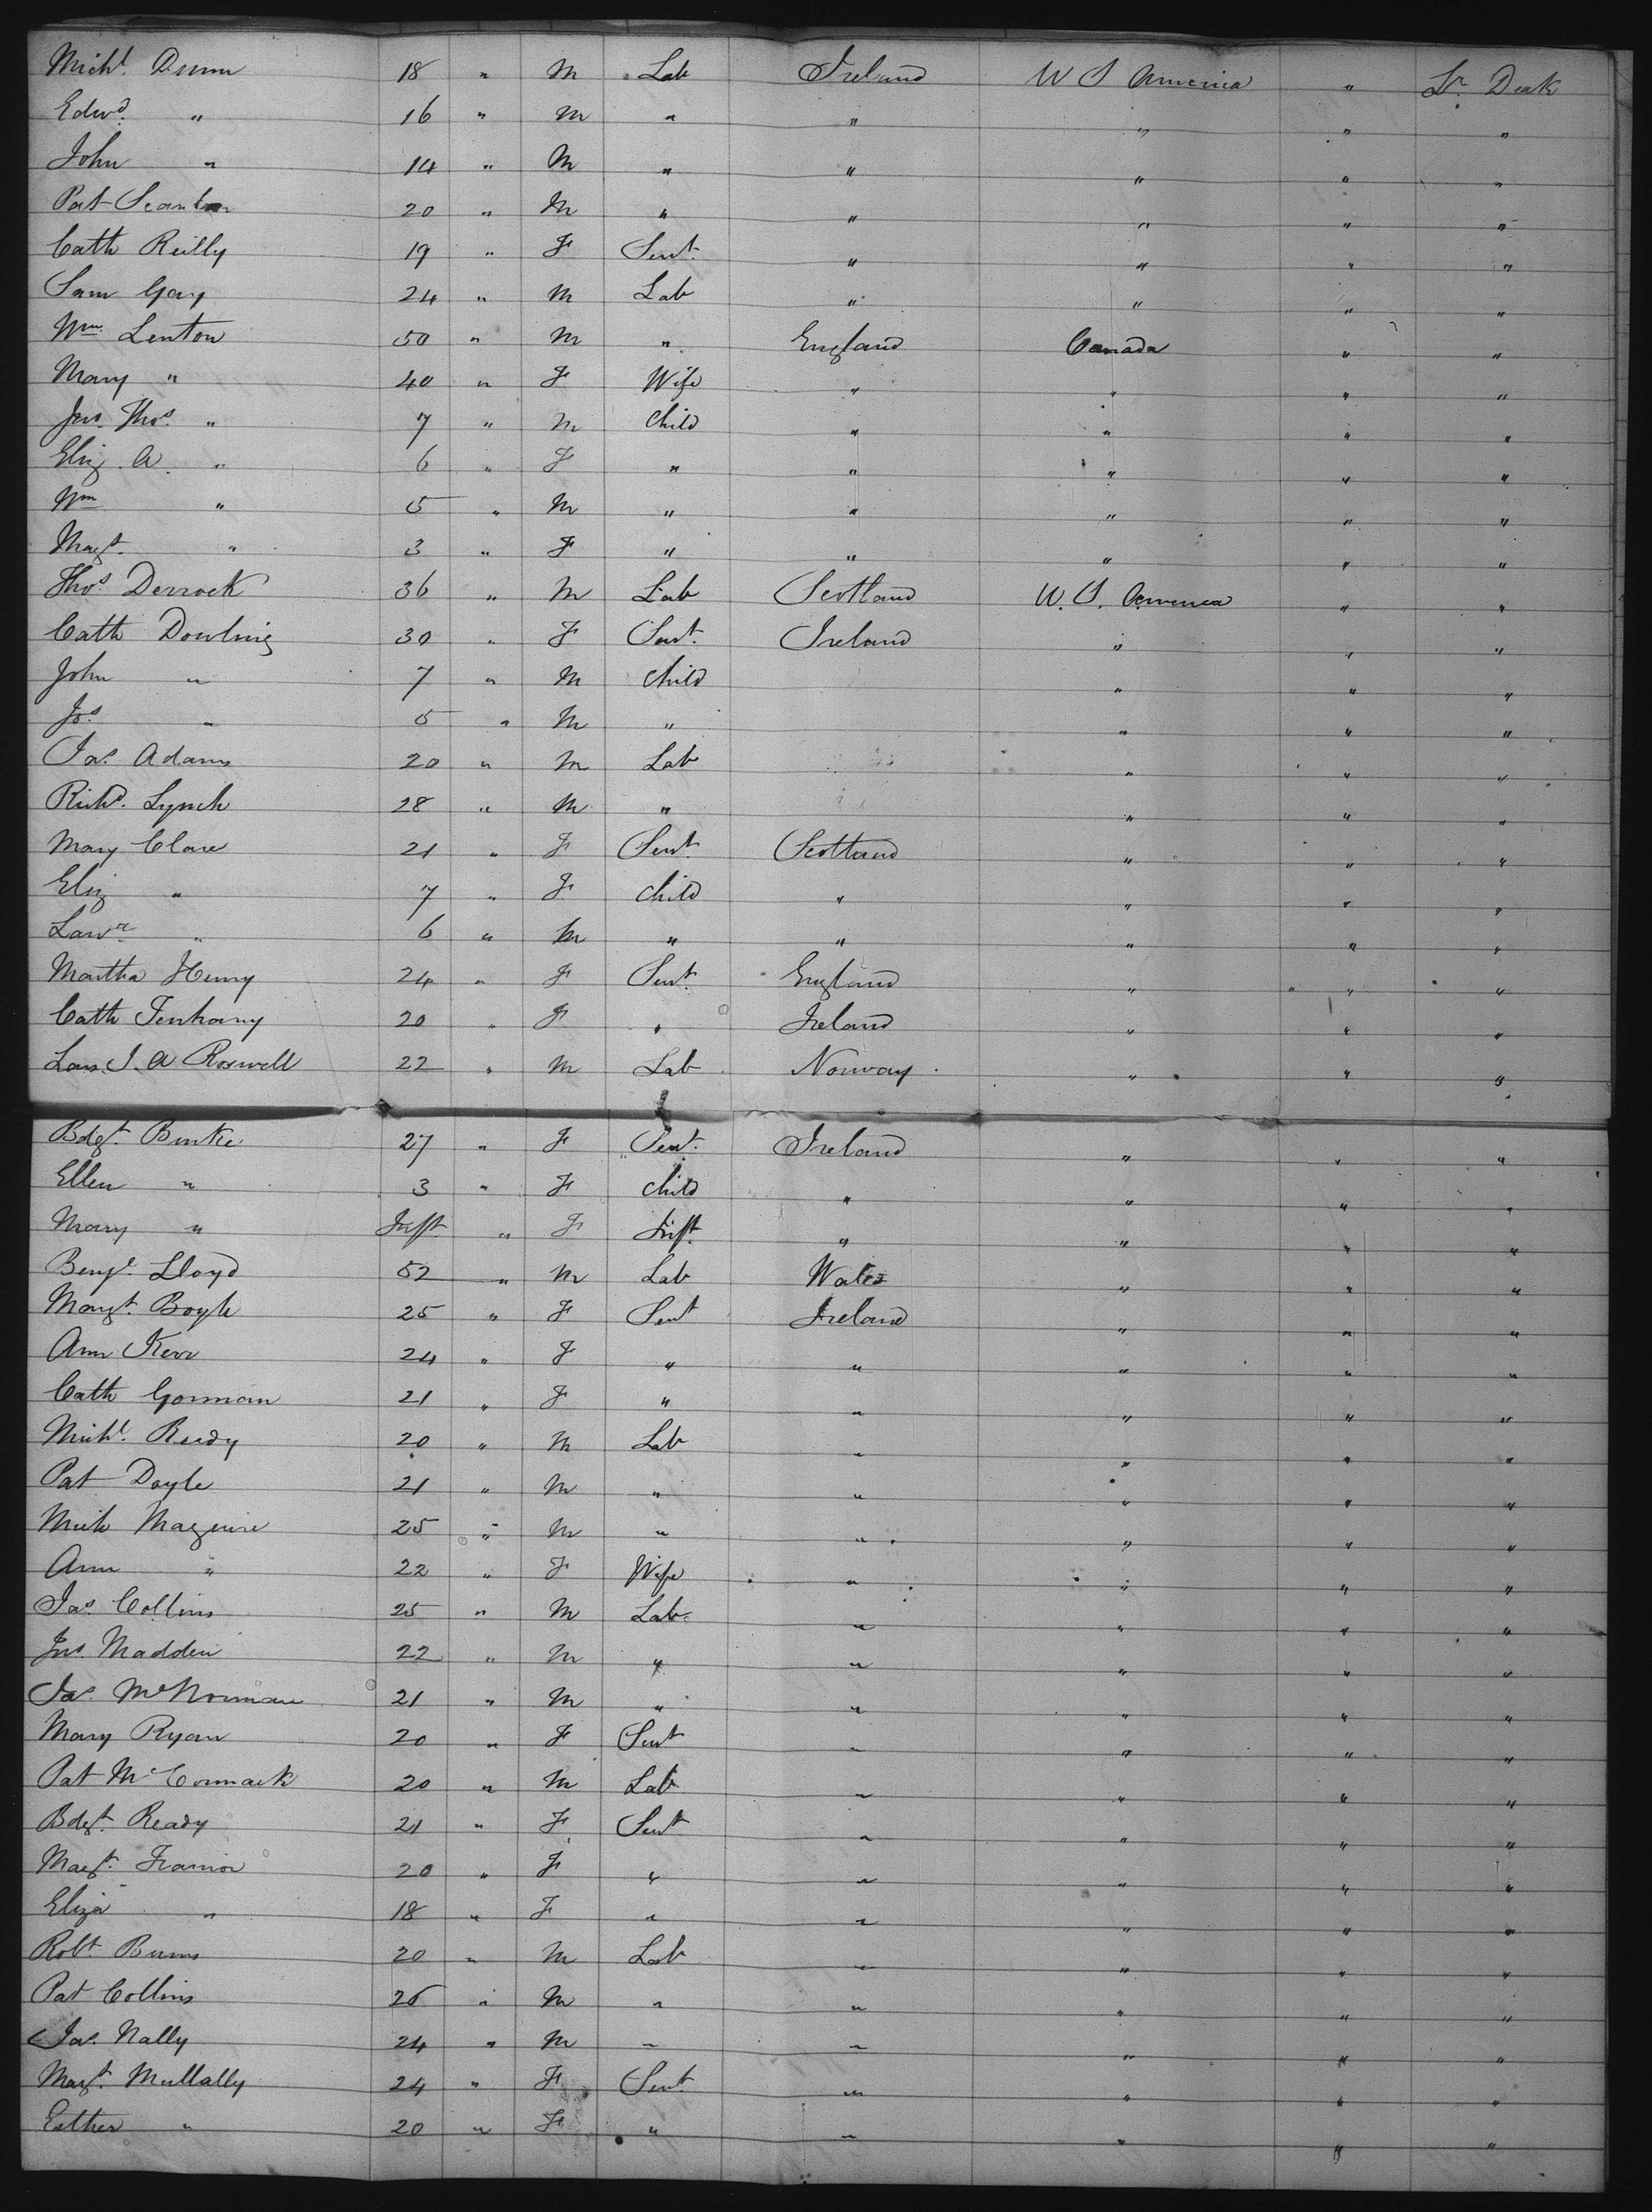 Michl. Dunn 18 " M Lab Ireland U S America " Lr. Deck
Edwd. " 16 " M " " " " "
John " 14 " M " " " " "
Pat Scanlan 20 " M " " " " "
Cath Reilly 19 " F Sevt. " " " "
Sam Gary 24 " M Lab " " " "
Wm. Lenton 50 " M " England Canada " "
Mary " 40 " F Wife " " " "
Jno. Thos. " 7 " M Child " " " "
Eliz. A. " 6 " F " " " " "
Wm " 5 " M " " " " "
Magt. " 3 " F " " " " "
Thos. Derrock 36 " M Lab Scotland U. S. America " "
Cath Dowling 30 " F Sevt. Ireland " " "
John " 7 " M Child " " "
Jos. " 5 " M " " " "
Jas. Adams 20 " M Lab " " "
Richd. Lynch 28 " M " " " "
Mary Clare 21 " F Sevt. Scotland " " "
Eliz " 7 " F Child " " " "
Lawr. " 6 " M " " " " "
Martha Henry 24 " F Sevt. England " " "
Cath 20 " F " Ireland " " "
J. A Roswell 22 " M Lab Norway " " "
Bdgt. Burke 27 " F Sevt. Ireland " " "
Ellen " 3 " F Child " " " "
Mary " Inft. " F Inft. " " " "
Benjn. Lloyd 52 " M Lab Wales " " "
Margt. Boyle 25 " F Sevt Ireland " " "
Ann Kerr 24 " F " " " " "
Cath Gorman 21 " F " " " " "
Michl. Ready 20 " M Lab " " " "
Pat Doyle 21 " M " " " " "
Mich Maguire 25 " M " " " " "
Ann " 22 " F Wife " " " "
Jas. Collins 25 " M Lab. " " " "
Jno. Madden 22 " M " " " " "
Jas. 21 " M " " " " "
Mary Ryan 20 " F Sevt " " " "
Pat McCormack 20 " M Lab " " " "
Bdgt. Ready 21 " F Sevt " " " "
Magt. 20 " F " " " " "
Eliza " 18 " F " " " " "
Robt. Burns 20 " M Lab " " " "
Pat Collins 26 " M " " " " "
Jas. Nally 24 " M " " " " "
Magt. Mullally 24 " F Sevt. " " " "
Esther " 20 " F " " " " "